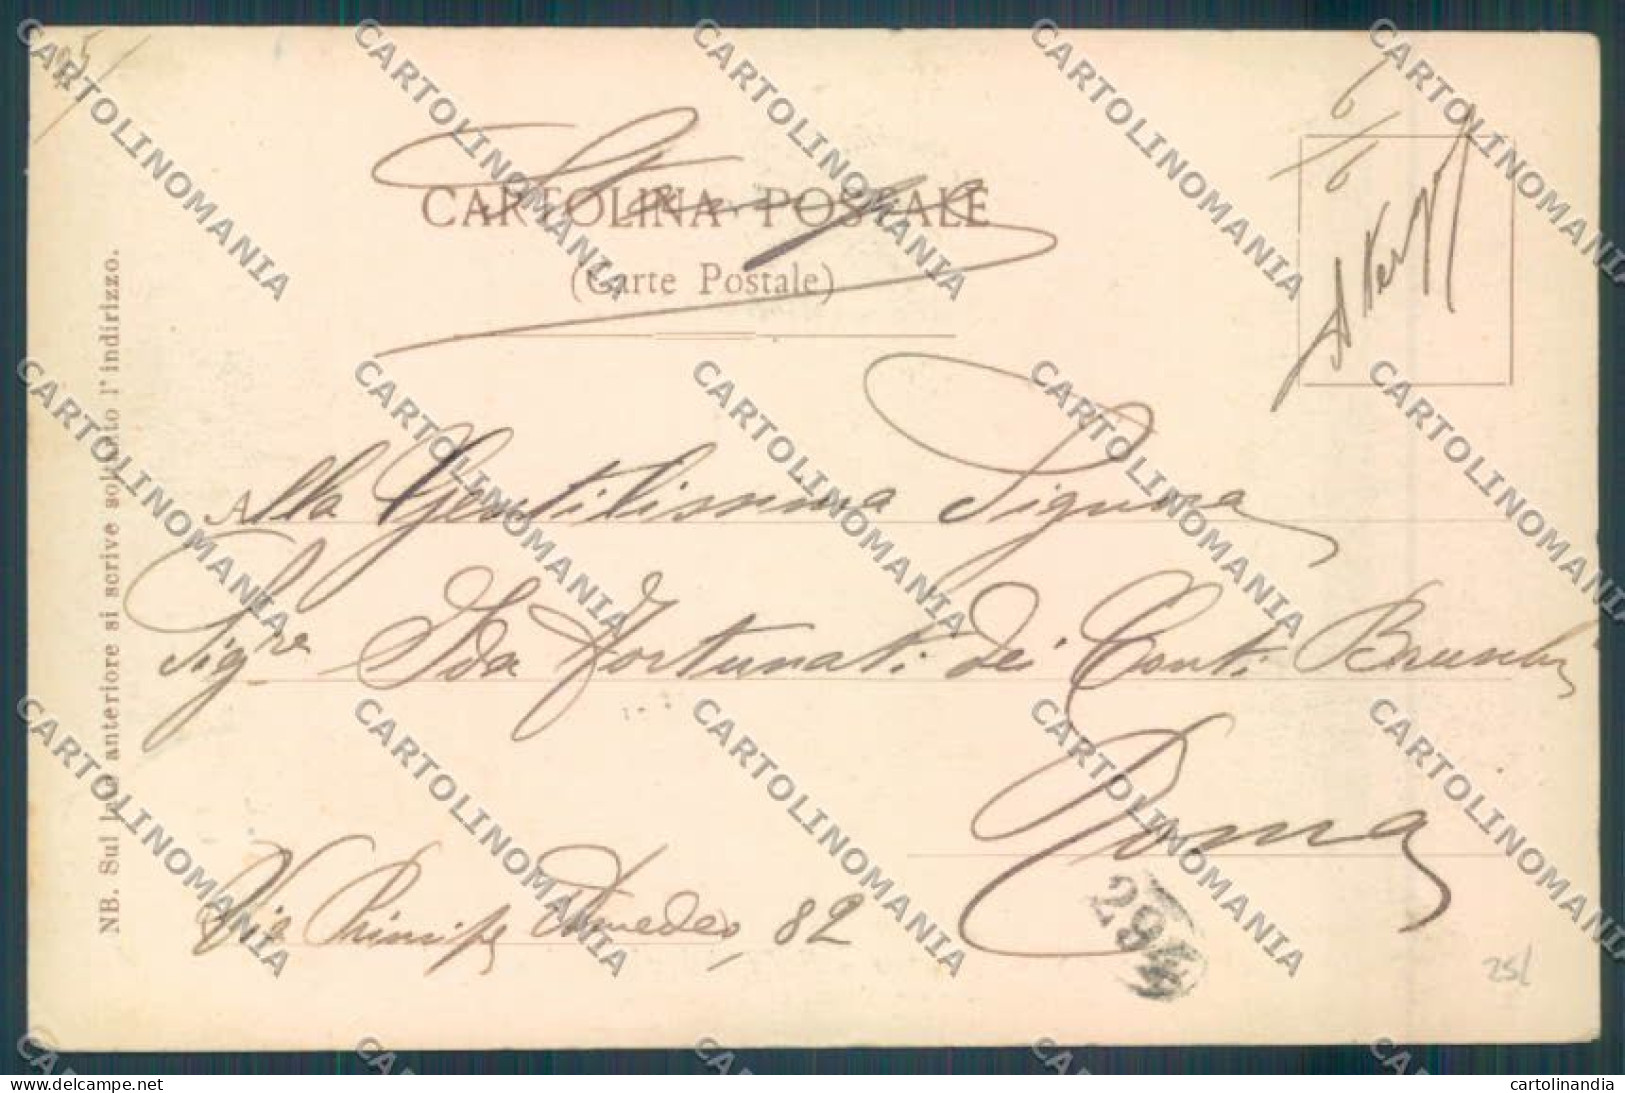 95
6
6
Stampe
CARTOLINA POSTALE
(Carte Postale)
NB. Sul lato anteriore si scrive soltanto l'indirizzo.
Alla Gentilissima Signora
Sigra Ida Fortunati dei Conti
Roma
Via Principe Amedeo, 82
294
25l
CARTOLINOMANIA
cartolinandia